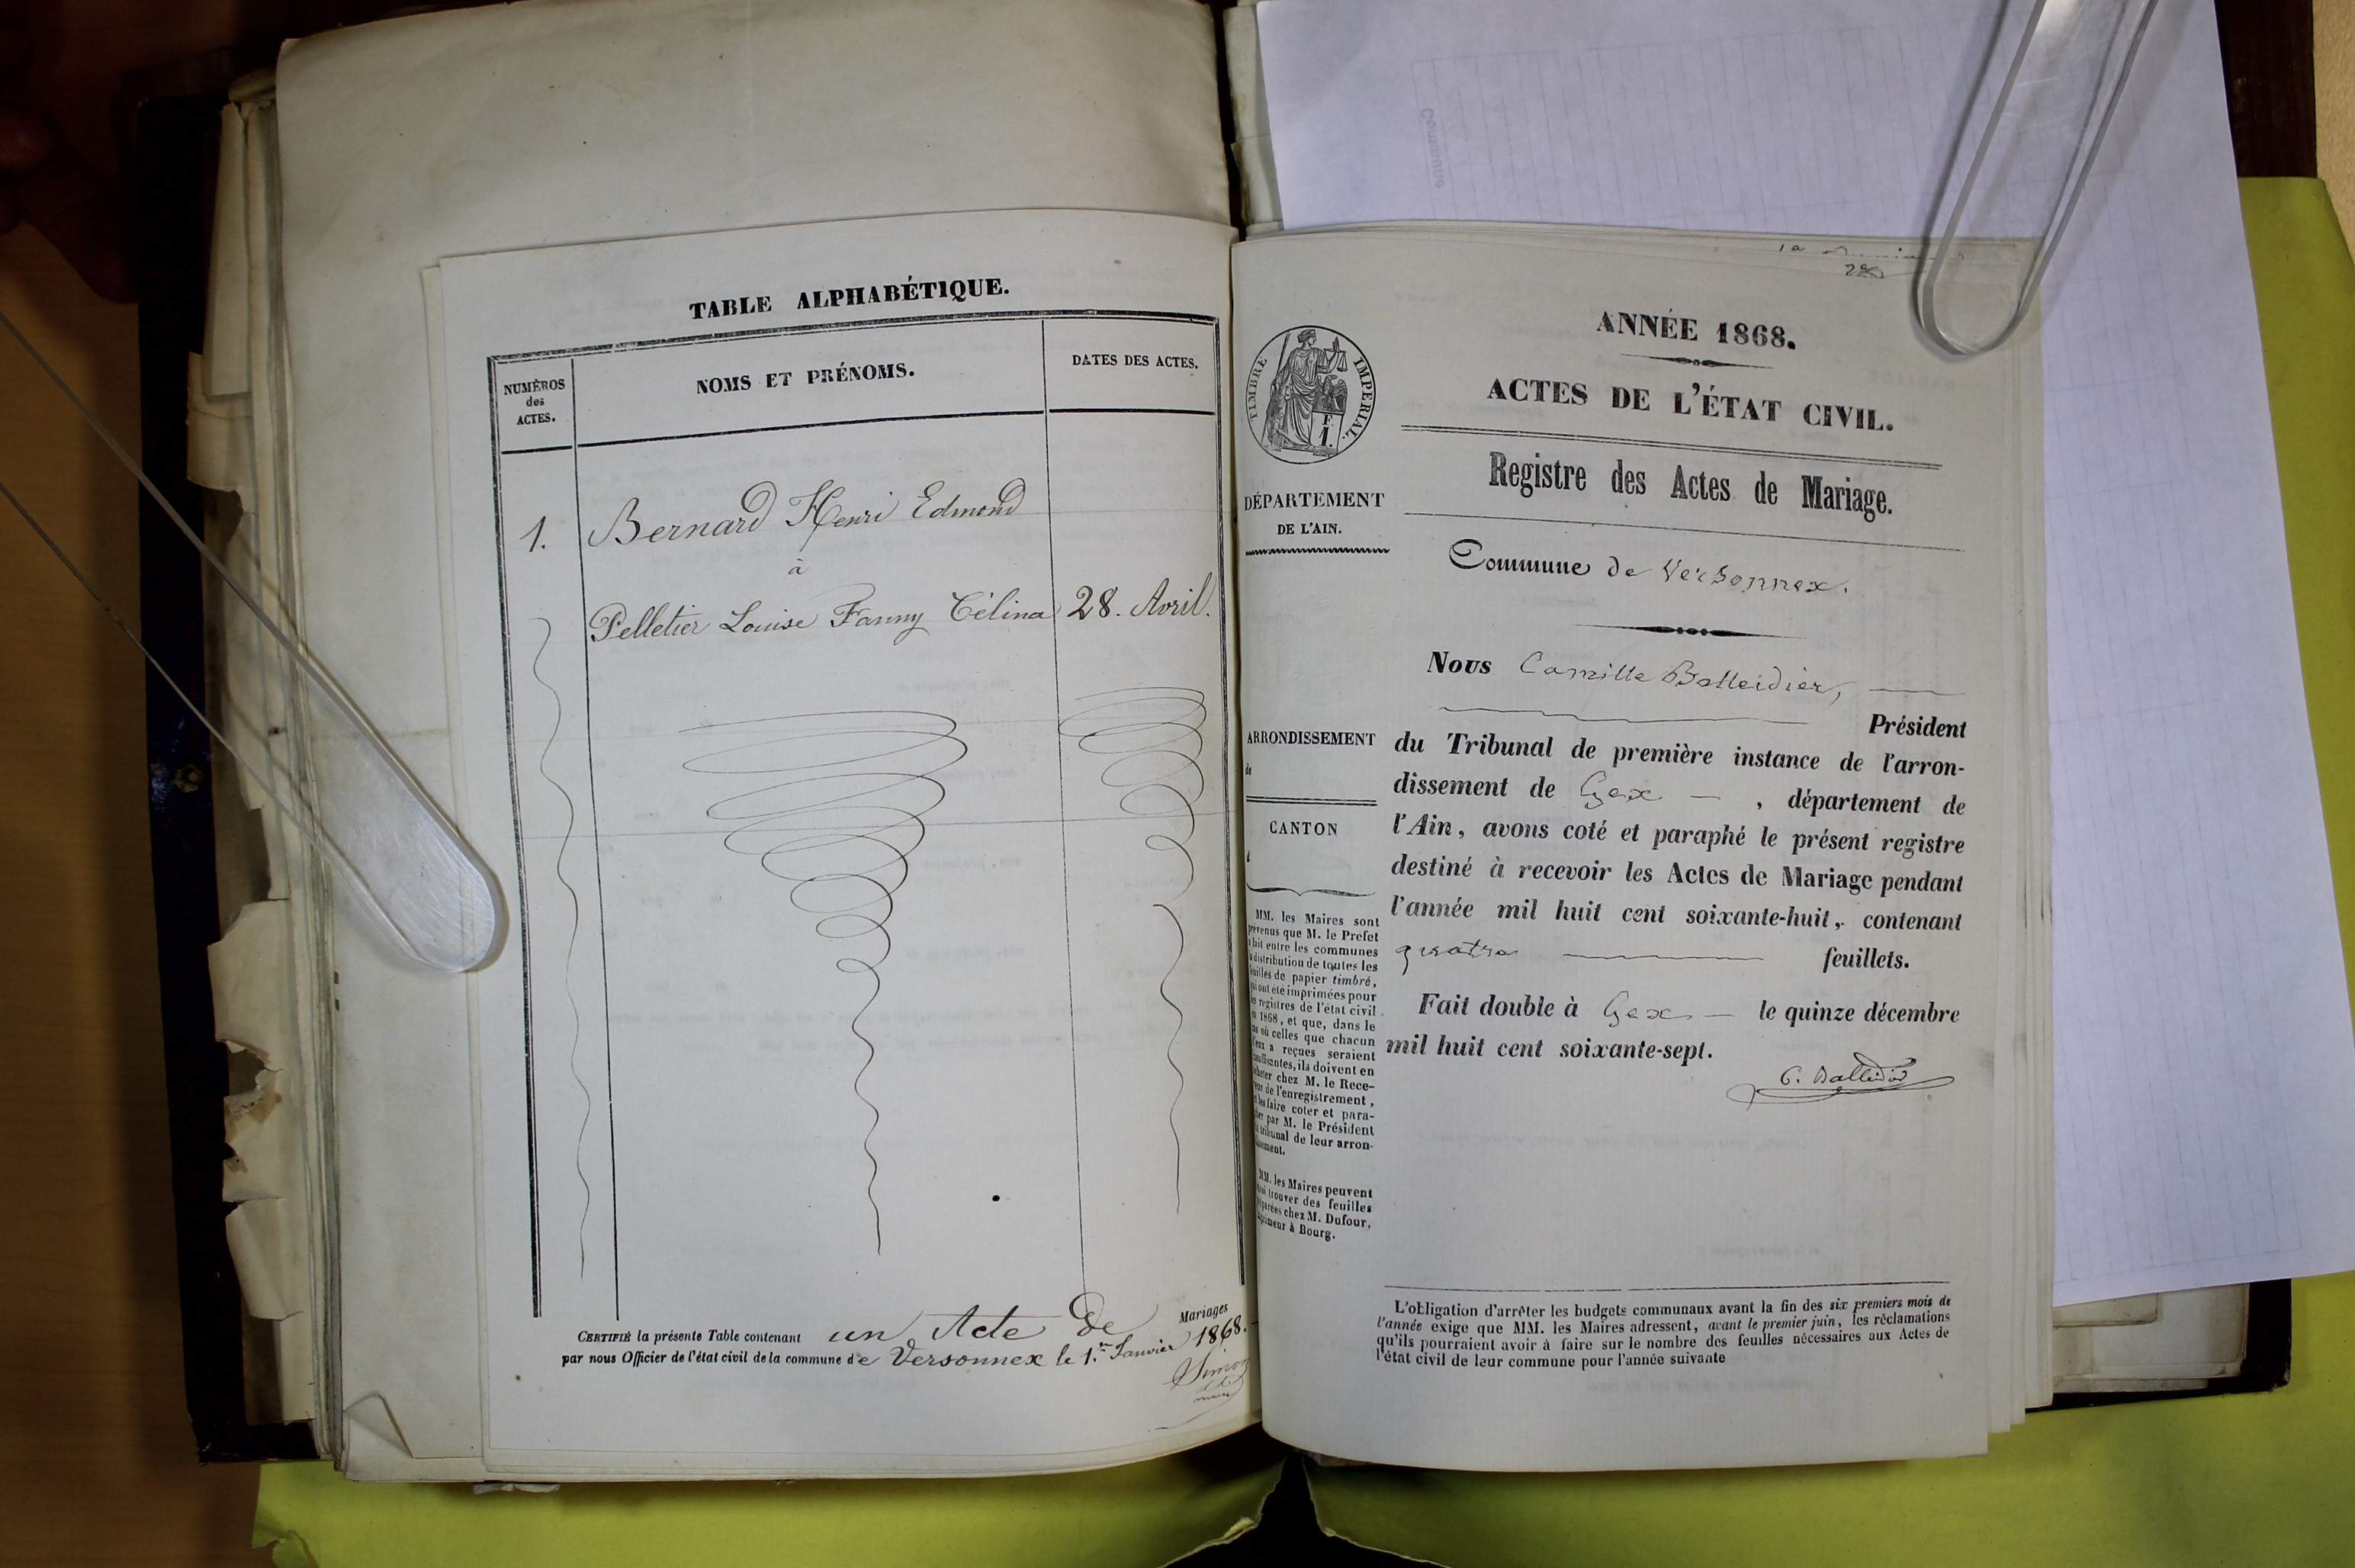 TABLE ALPHABÉTIQUE.
NUMÉROS
des
ACTES.
NOMS ET PRÉNOMS.
DATES DES ACTES.
1.
Bernard Henri Edmond
à
Pelletier Louise Fanny Célina
28. Avril.
CERTIFIÉ la présente Table contenant un Acte de Mariages
par nous Officier de l'état civil de la commune de Versonnex le 1.er Janvier 1868.
Simon
maire
ANNÉE 1868.
ACTES DE L'ÉTAT CIVIL.
Registre des Actes de Mariage.
TIMBRE IMPÉRIAL.
F.
1.
DÉPARTEMENT
DE L'AIN.
Commune de Versonnex.
Nous Camille Balleidier,
Président
du Tribunal de première instance de l'arron-
dissement de Gex — , département de
l'Ain, avons coté et paraphé le présent registre
destiné à recevoir les Actes de Mariage pendant
l'année mil huit cent soixante-huit, contenant
quatre feuillets.
Fait double à Gex — le quinze décembre
mil huit cent soixante-sept.
C. Balleidier
ARRONDISSEMENT
de
CANTON
MM. les Maires sont
prévenus que M. le Préfet
fait entre les communes
distribution de toutes les
feuilles de papier timbré,
ont été imprimées pour
registres de l'état civil
1868, et que, dans le
où celles que chacun
a reçues seraient
insuffisantes, ils doivent en
acheter chez M. le Rece-
de l'enregistrement,
les faire coter et para-
par M. le Président
tribunal de leur arron-
dissement.
MM. les Maires peuvent
trouver des feuilles
préparées chez M. Dufour,
imprimeur à Bourg.
L'obligation d'arrêter les budgets communaux avant la fin des six premiers mois de
l'année exige que MM. les Maires adressent, avant le premier juin, les réclamations
qu'ils pourraient avoir à faire sur le nombre des feuilles nécessaires aux Actes de
l'état civil de leur commune pour l'année suivante
Commune